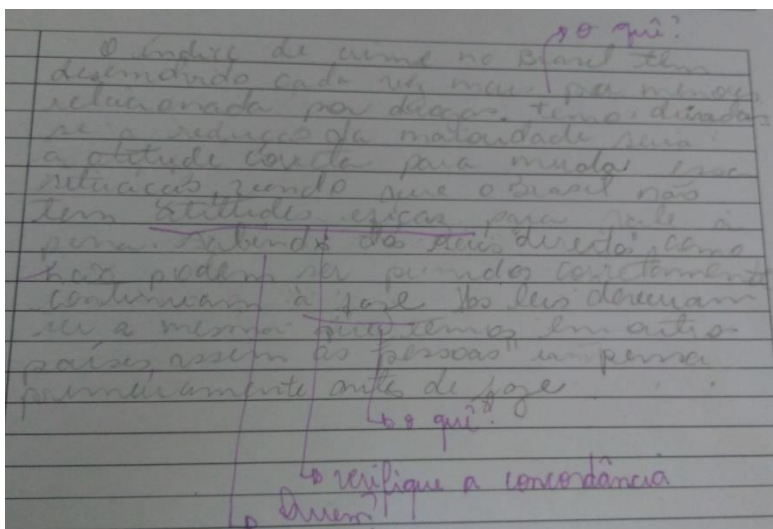 o quê?
O índice de crime no Brasil tem
cada vez mais por menores
relacionada por drogas. temos
se a redução da maioridade seria
a atitude correta para mudar essa
situação, sendo que o Brasil não
tem atitudes eficaz para vale a
pena. Sabendo dos seus direitos, como
não podem ser punidos corretamente
continuam à faze. As leis deveriam
ser a mesma que vemos em outros
países, assim as pessoas iam pensa
primeiramente antes de faze.
o quê?
verifique a concordância
Quem?